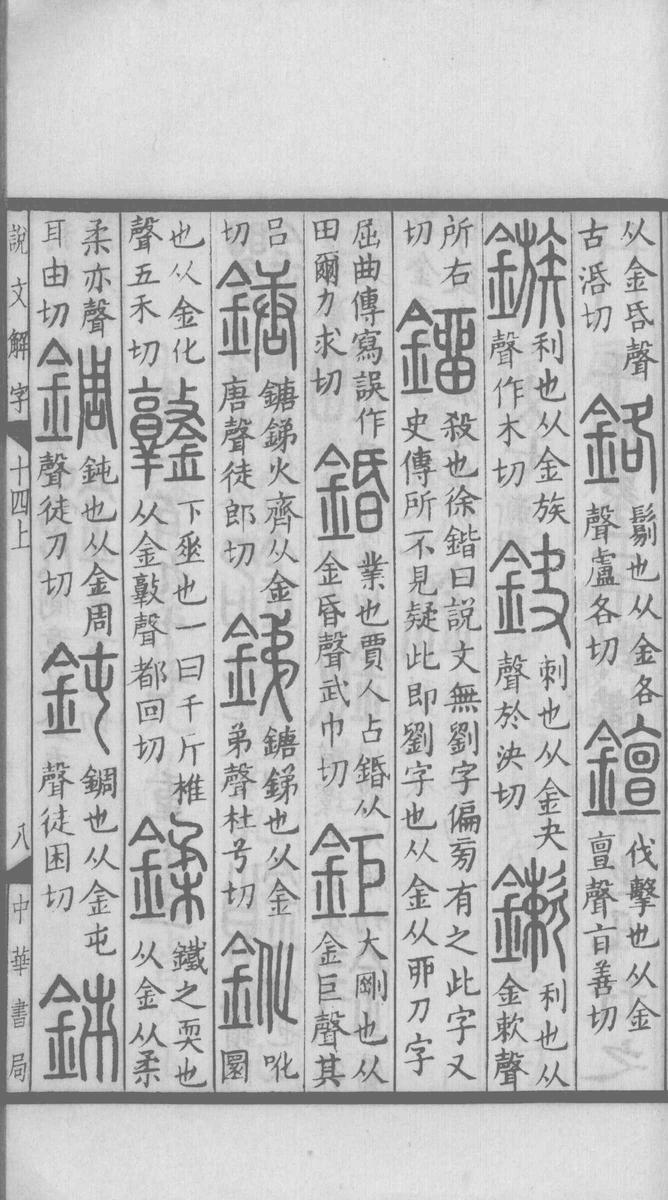 从金昏聲
古湣切
鉻
鬄也从金各
聲盧各切
伐擊也从金
亶聲旨善切
鏃
利也从金族
聲作木切
鈌
刺也从金夬
聲於決切
鏉
利也从
金欶聲
所右
切
鎦
殺也徐鍇曰説文無劉字偏㫄有之此字又
史傳所不見疑此即劉字也从金从丣刀字
屈曲傳寫誤作
田爾力求切
鍲
業也賈人占鍲从
金昏聲武巾切
鉅
大剛也从
金巨聲其
呂
切
鎕
鎕銻火齊从金
唐聲徒郎切
銻
鎕銻也从金
弟聲杜兮切
鈋
吪
圜
也从金化
聲五禾切
鐜
下垂也一曰千斤椎
从金敦聲都回切
鍒
鐵之耎也
从金从柔
柔亦聲
耳由切
錭
鈍也从金周
聲徒刀切
鈍
錭也从金屯
聲徒困切
説文解字 十四上 八 中華書局